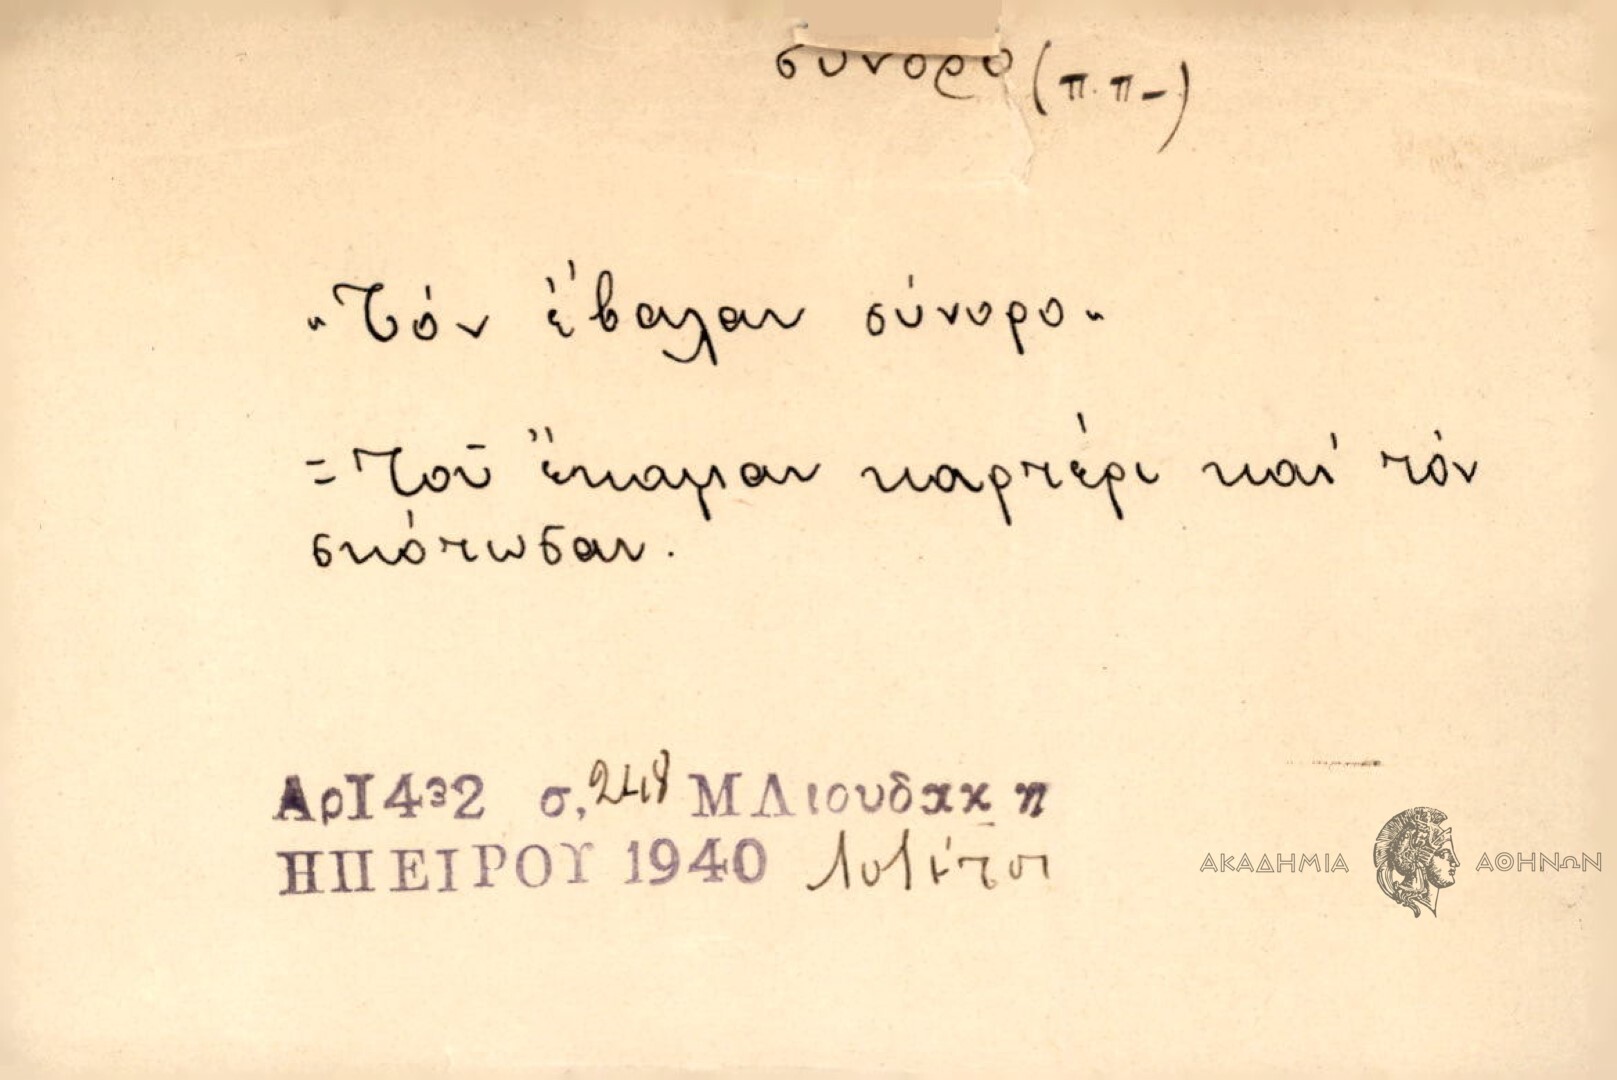 σύνορο (π.π-)
"Τόν ἔβαλαν σύνορο"
= Τοῦ ἔκαμαν καρτέρι καί τόν
σκότωσαν.
Αρ 1432 σ. 248 Μ Λιουδακη
ΗΠΕΙΡΟΥ 1940
ΑΚΑΔΗΜΙΑ ΑΘΗΝΩΝ